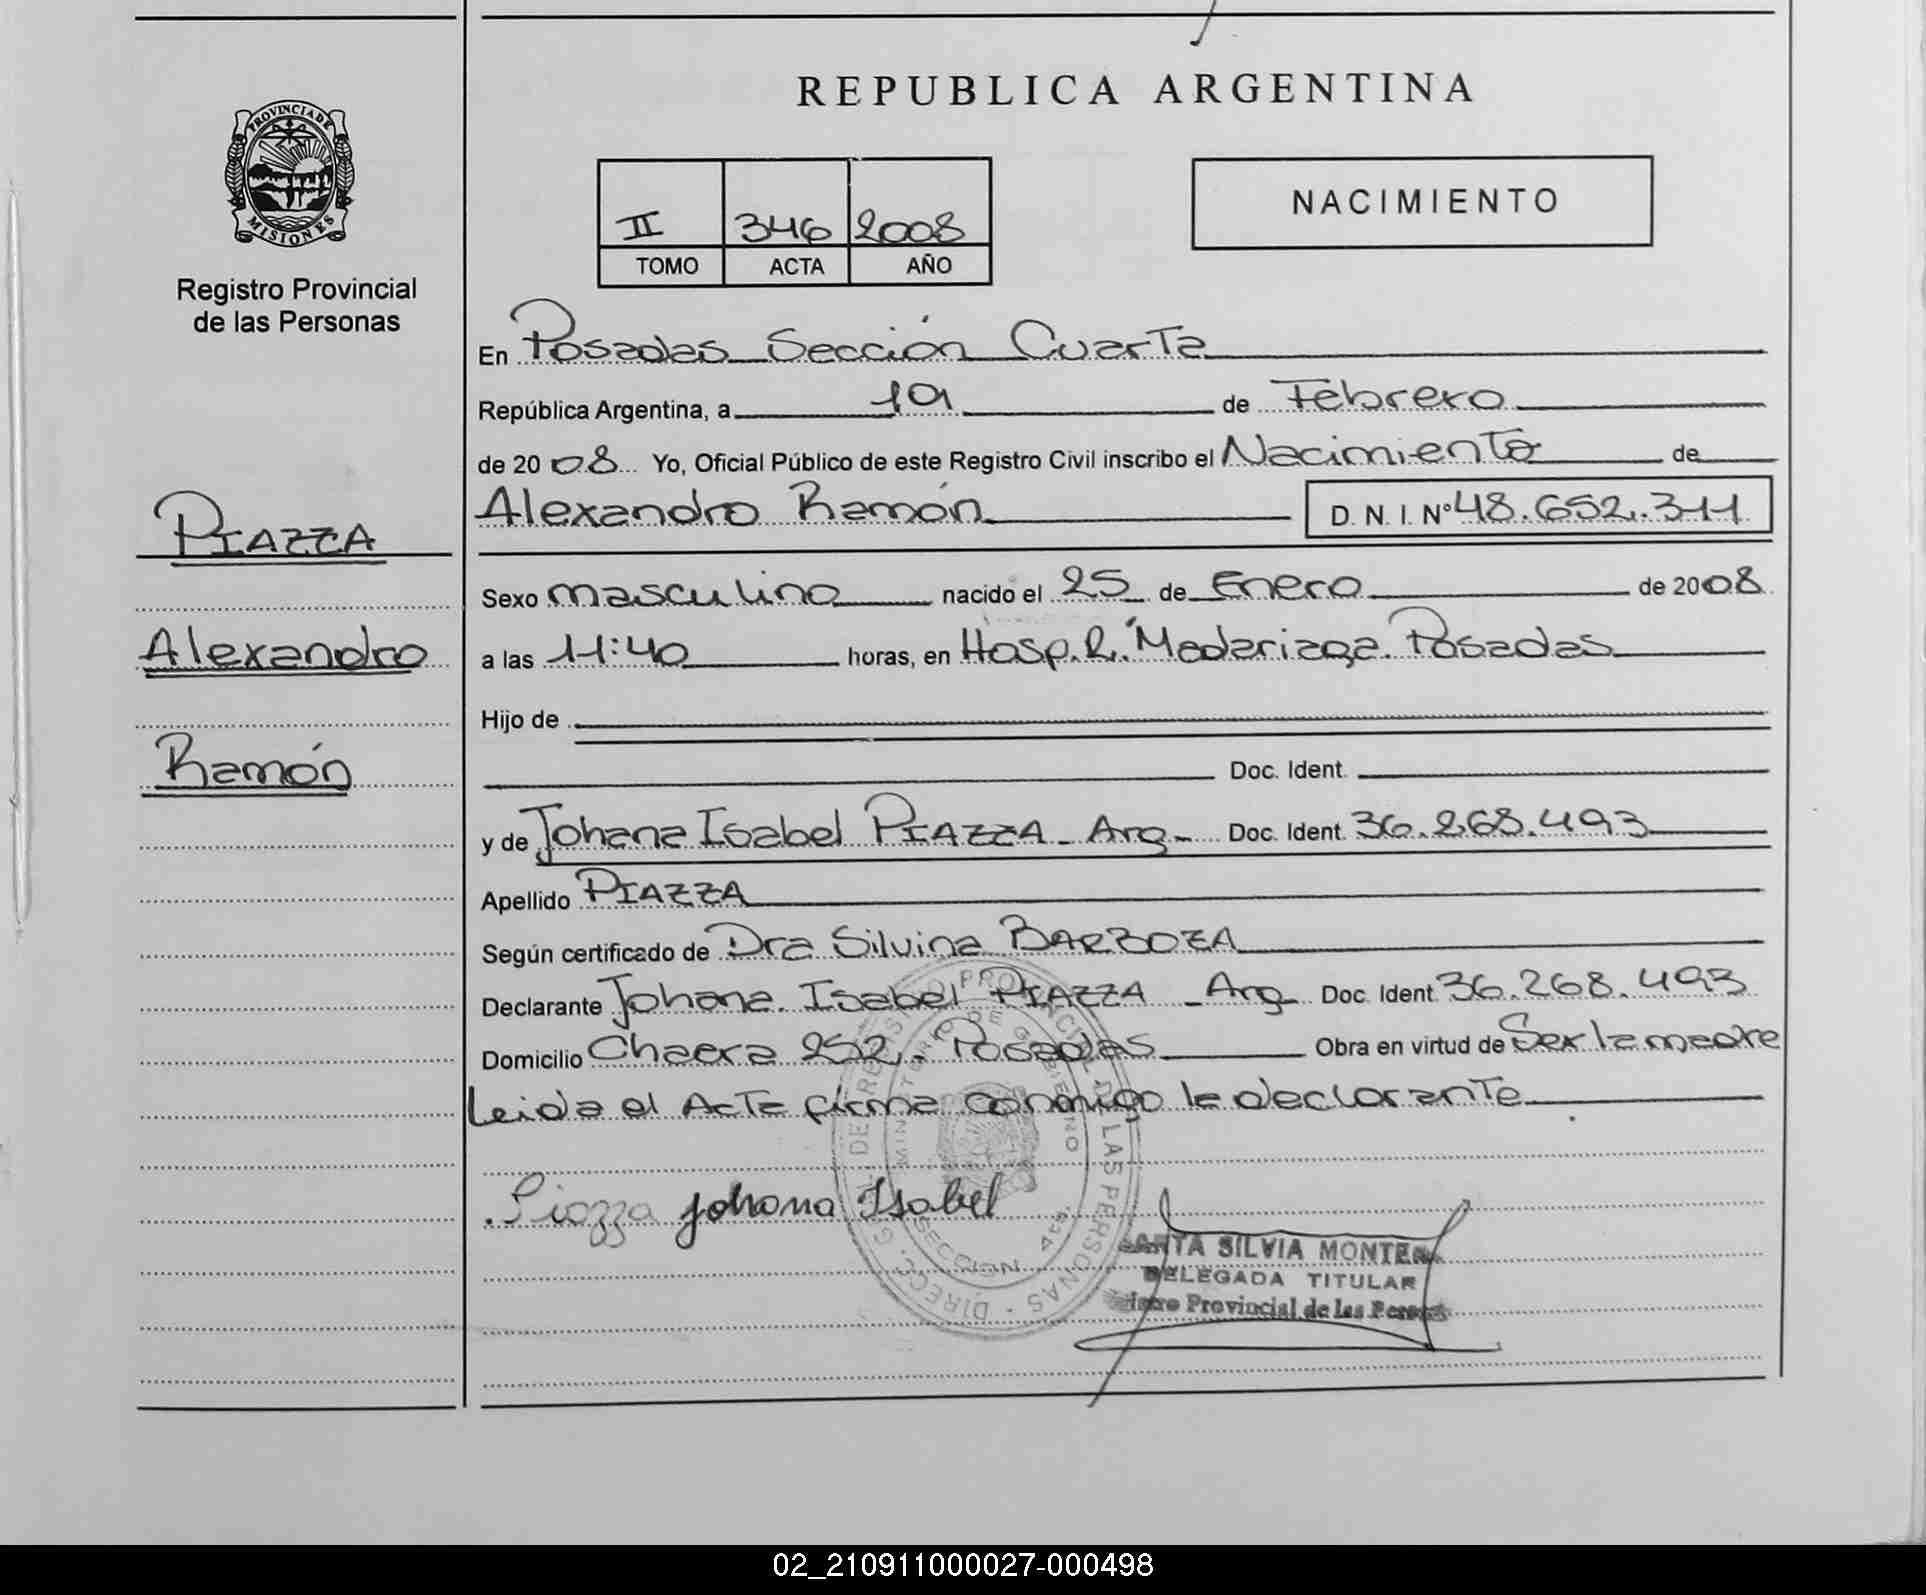 REPUBLICA ARGENTINA
PROVINCIA DE
MISIONES
Registro Provincial
de las Personas
II 346 2008
TOMO ACTA AÑO
NACIMIENTO
En Posadas Sección Cuarta
República Argentina, a 19 de Febrero
de 2008 Yo, Oficial Público de este Registro Civil inscribo el Nacimiento de
Alexandro Ramón D.N.I. Nº 48.652.311
PIAZZA
Alexandro
Ramón
Sexo masculino nacido el 25 de Enero de 2008
a las 11:40 horas, en Hosp. R. Madariaga. Posadas
Hijo de
Doc. Ident.
y de Johana Isabel PIAZZA - Arg - Doc. Ident. 36.268.493
Apellido PIAZZA
Según certificado de Dra Silvina BARBOZA
Declarante Johana Isabel PIAZZA - Arg Doc. Ident. 36.268.493
Domicilio 252 - Posadas Obra en virtud de Ser la madre
Leida el Acta firma conmigo la declarante
Piazza Johana Isabel
SILVIA
DELEGADA TITULAR
Provincial de las
MINISTERIO DE GOBIERNO
SECCION 4ta
02_210911000027-000498